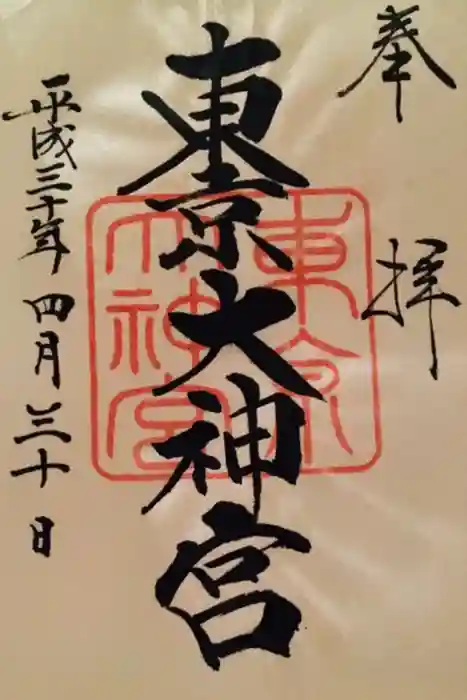 奉拝
東京大神宮
平成三十年四月三十日
東京
大神宮